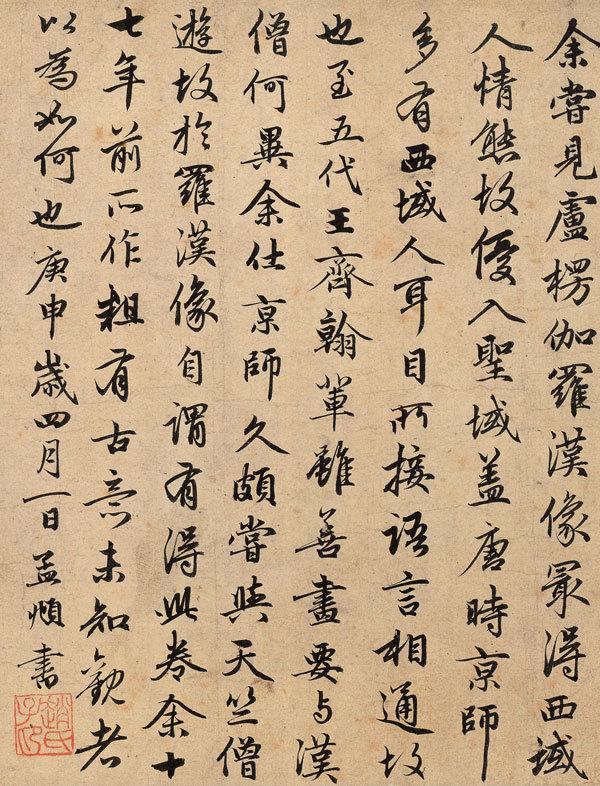 余嘗見盧楞伽羅漢像最得西域
人情態故優入聖域蓋唐時京師
多有西域人耳目所接語言相通故
也至五代王齊翰輩雖善畫要与漢
僧何異余仕京師久頗嘗與天竺僧
遊故於羅漢像自謂有得此卷余十
七年前所作粗有古意未知觀者
以為如何也庚申歲四月一日孟頫書
趙氏子印